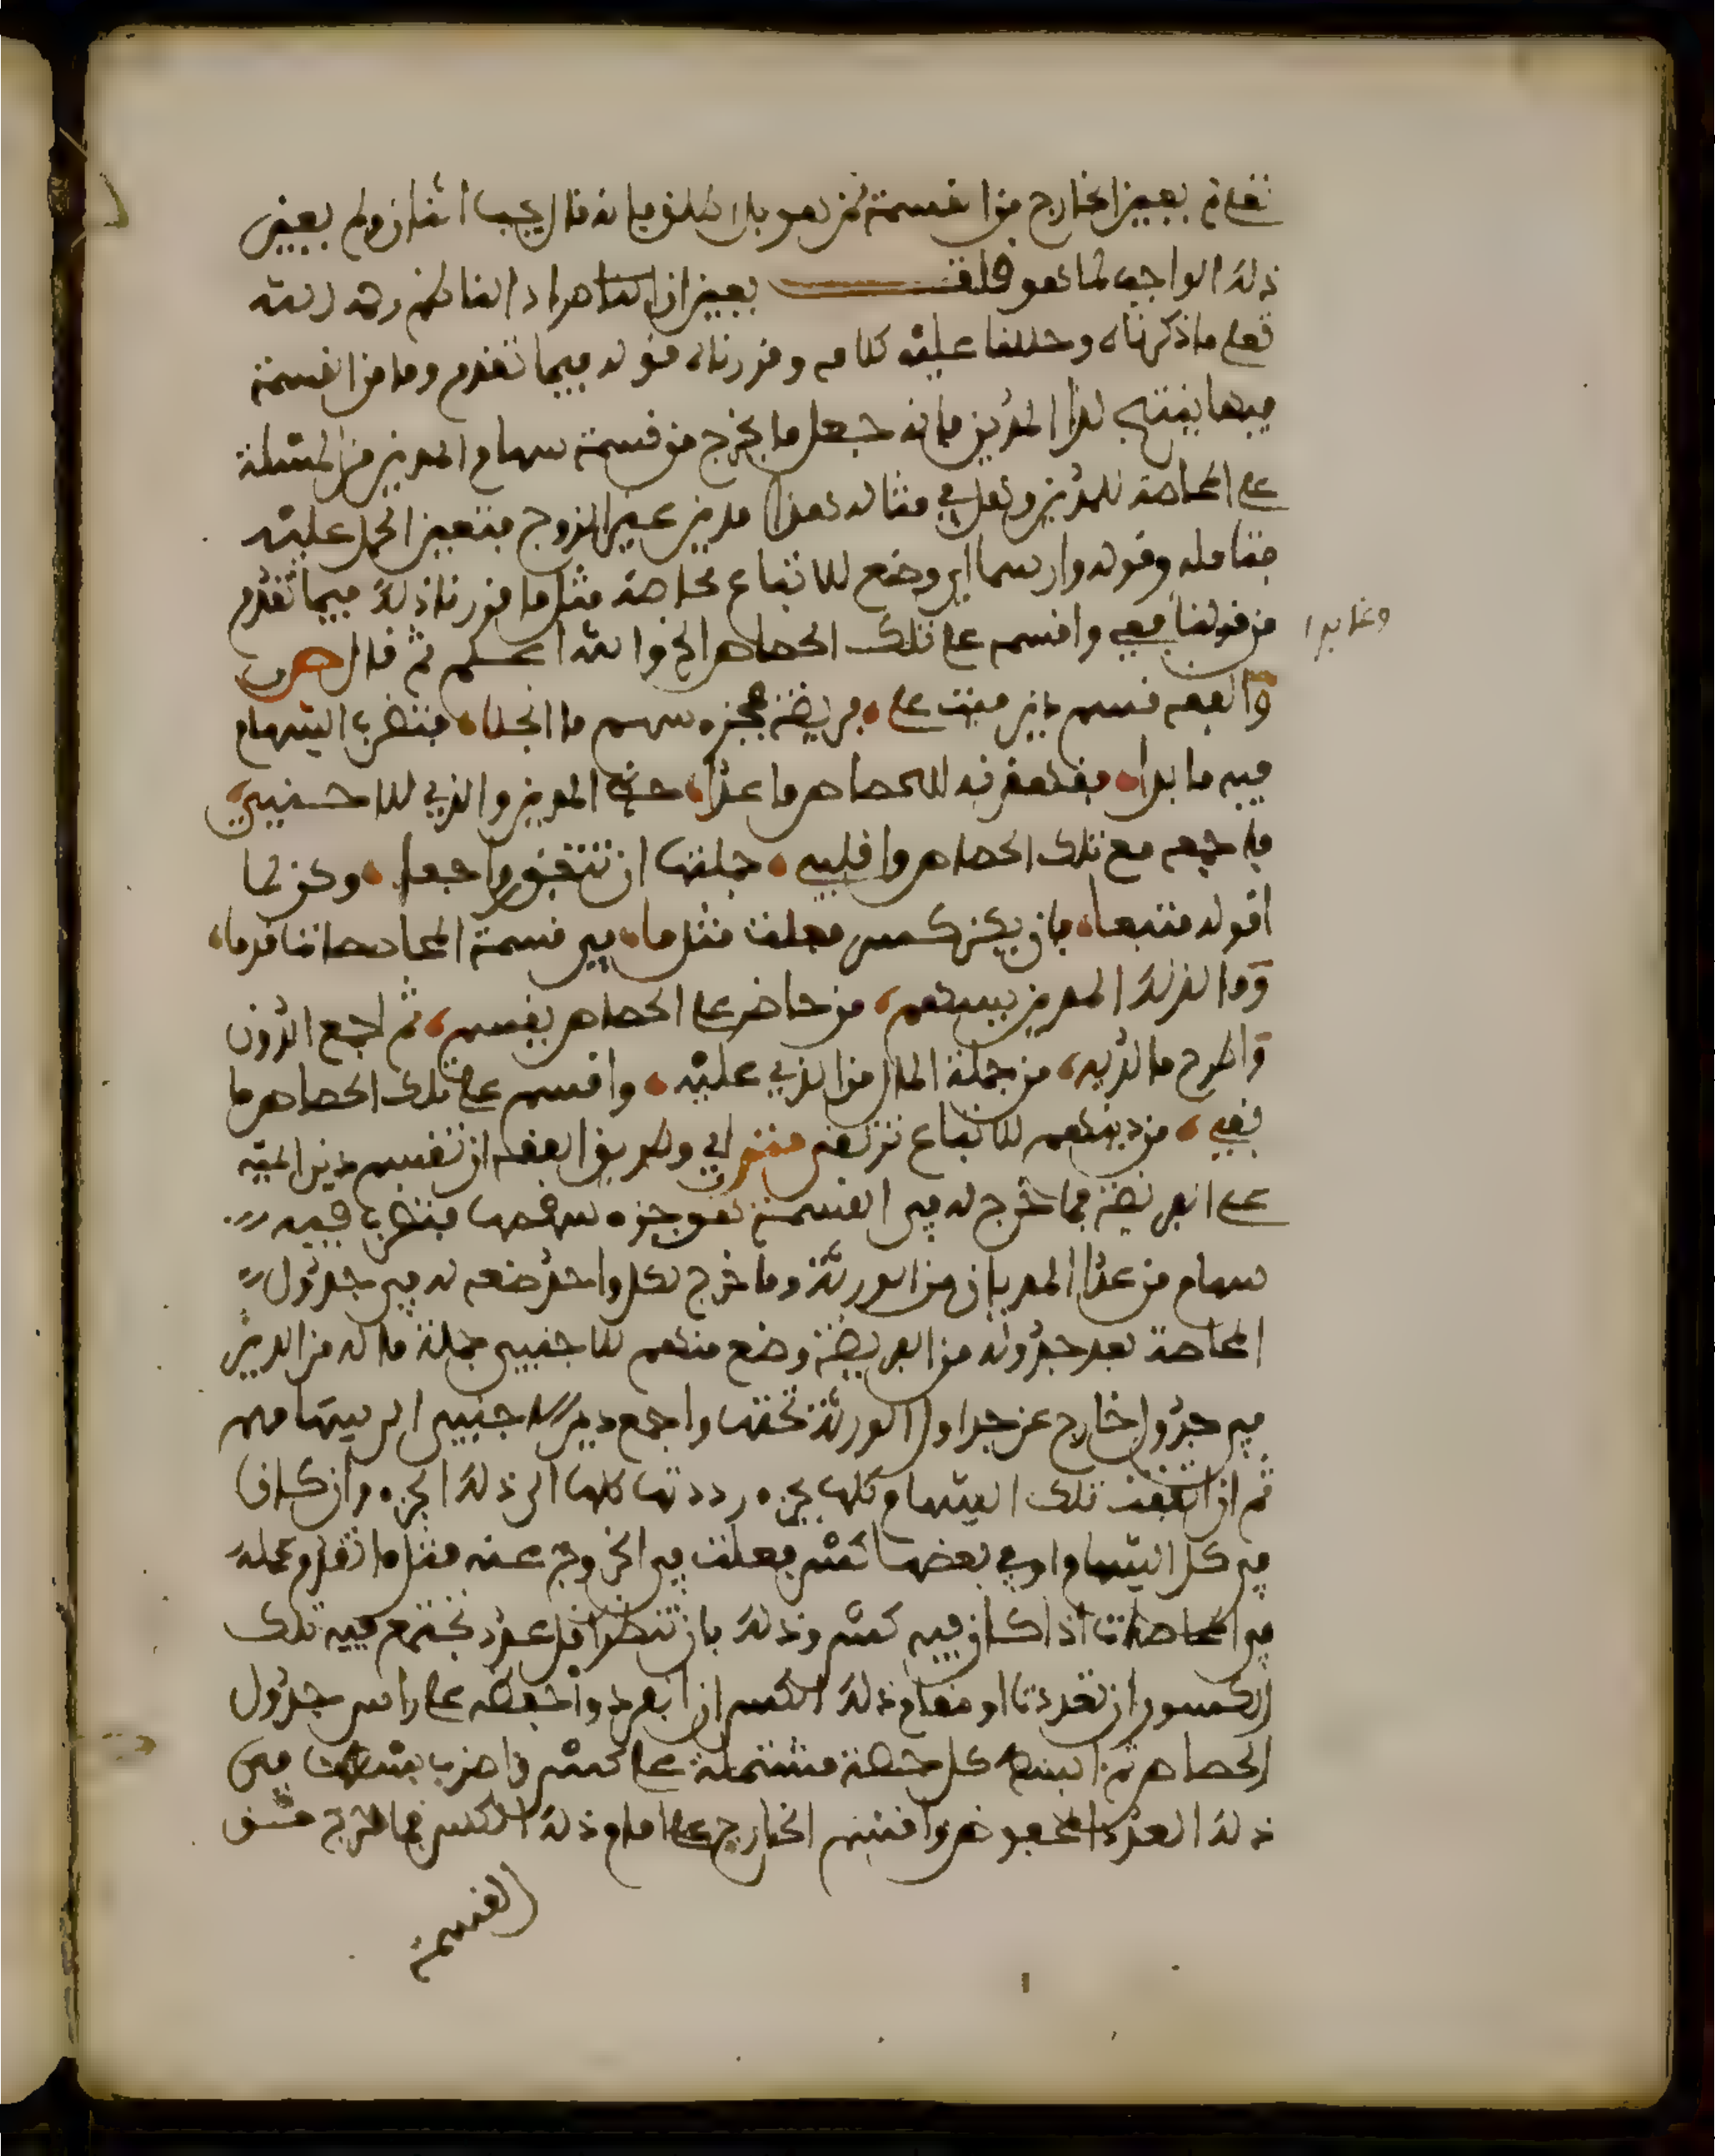 تقدم تعيين الخارج من القسمة لمن هو بل اطلق فإنه قال يجب اثنان ولم يعين
ذلك الواجب لما هو قلت تعيين ان الناظم رحمه الله
على ما ذكرناه وحملنا عليه كلامه وقررناه قوله فيما تقدم وما من القسمة
فيها ينتهي لذا المدين فإنه جعل ما يخرج من قسمة سهام المدين من المسئلة
على المحاصة للمدين وهل في مثاله هذا مدين غير الزوج فتعين الحمل عليه
فتأمله وقوله وارسما اي وضع للاتباع محاصة مثل ما قررنا ذلك فيما تقدم
من قولنا فهي واقسم على تلك الحصاص الخ والله اعلم ثم قال
والفقه قسم دين ميت على فريضة فجزء سهم ما انجلا فتضرب السهام
فيه ما بدا فقد عرفت للحصاص ما عدا حظ المدين والذي للاجنبي
فاجمعه مع تلك الحصاص واقلب جملتها ان تتفق واجعا وكن لما
اقوله متبعا فان يكن كسر فعلت مثل ما في قسمة المحاصات قدما
وما لذلك المدين بينهم من حاضر على الحصاص يقسم ثم اجمع الدون
واطرح ما لديه من جملة المال من الذي عليه واقسم على تلك الحصاص ما
بقي من دينهم للاتباع وطريق الفقه ان تقسم دين الميت
على الفريضة فما خرج له في القسمة هو جزء سهمها فتضرب فيه
سهام من عدا المديان من الورثة وما خرج لكل واحد ضعه له في جدول
المحاصة بعد جدوله من الفريضة وضع منهم للاجنبي جملة ما له من الدين
في جدول خارج عن جداول الورثة تحتها واجمع دين الاجنبي الى سهامهم
ثم ان اتفقت تلك السهام كلها بجزء رددتها كلها الى ذلك الجزء وان كان
في كل السهام او في بعضها كسر فعلت في الخروج عنه مثل ما تقدم عمله
في المحاصات اذا كان فيه كسر وذلك بان تنظر اقل عدد تجتمع فيه تلك
الكسور ان تعددت او مقام ذلك الكسر ان انفرد واحفظه على راس جدول
الحصاص ثم ابسط كل حصة مشتملة على كسر واضرب بسطها في
ذلك العدد المحفوظ واقسم الخارج على امام ذلك الكسر فما خرج من
القسمة